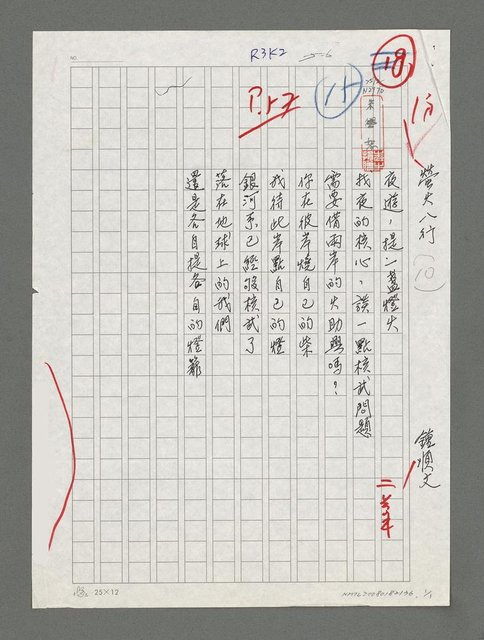 R3K2
5-6
18
11
P.52
NO.
螢火八行
鍾順文
夜遊,提一盞燈火
找夜的核心,談一點核試問題
需要借兩岸的火助興嗎?
你在彼岸燒自己的柴
我待此岸點自己的燈
銀河系已經夠核試了
落在地球上的我們
還是各自提各自的燈籠
25×12